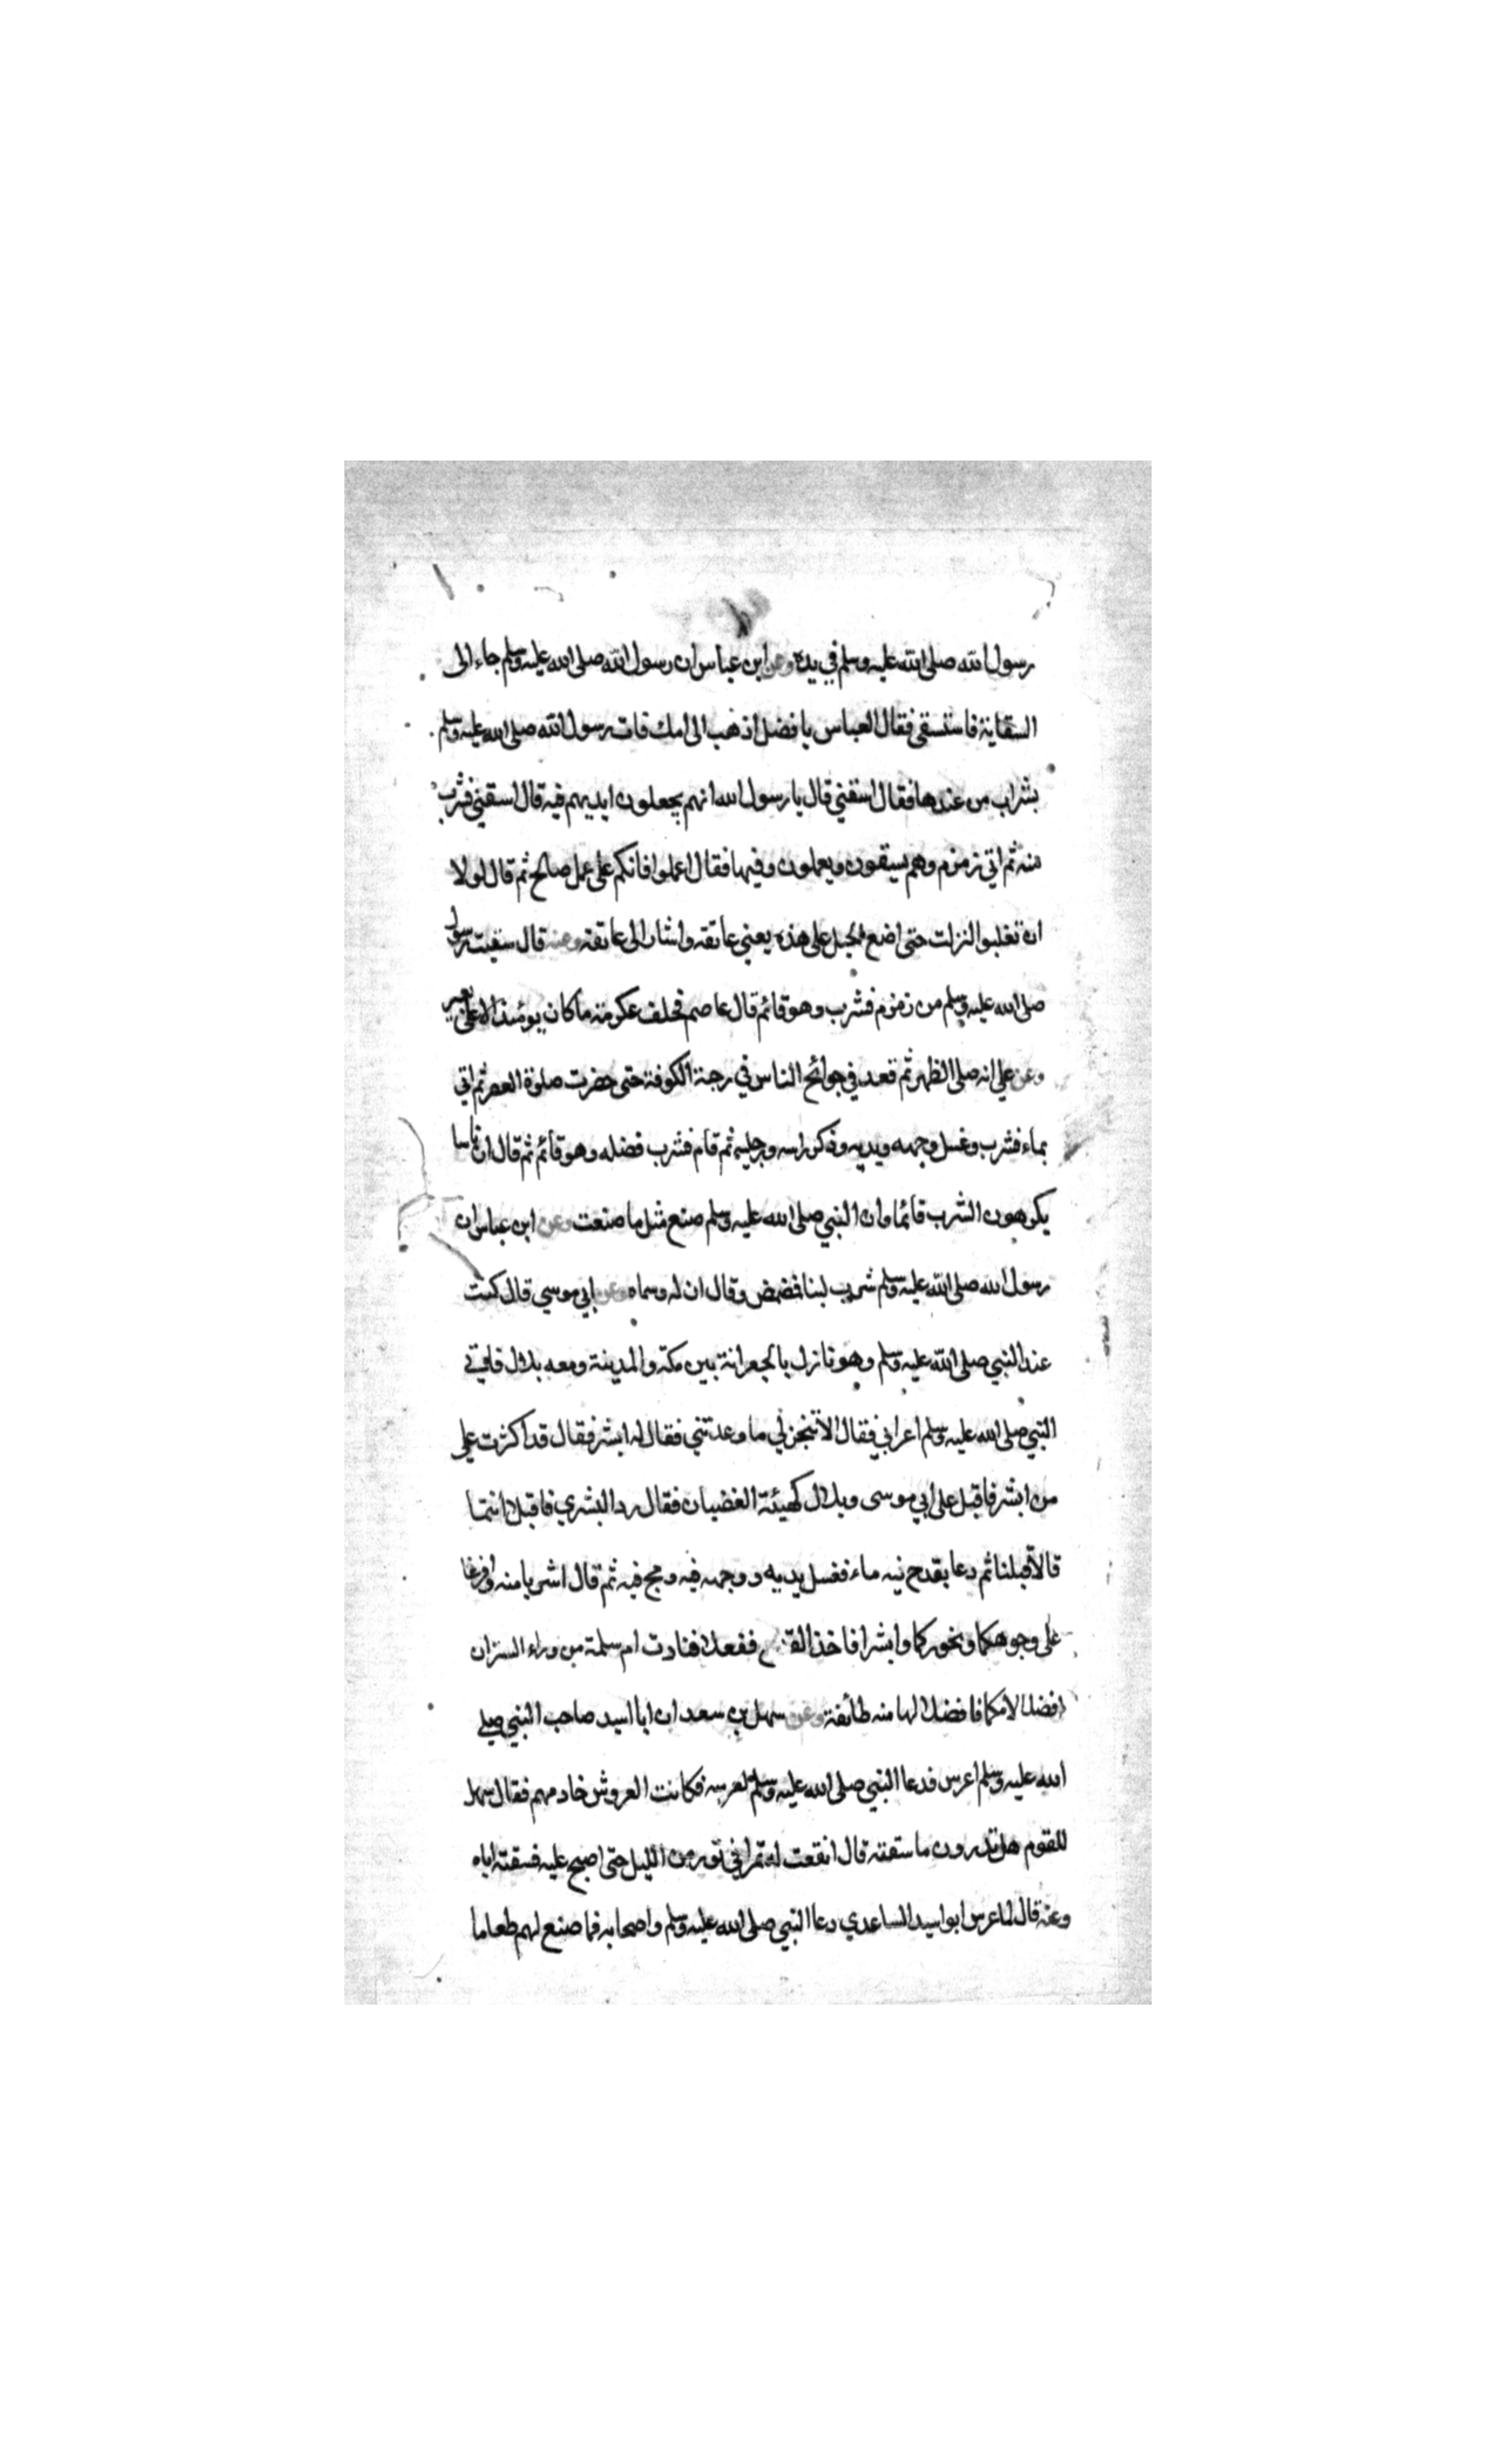 رسول الله صلى الله عليه وسلم في يده وعن ابن عباس ان رسول الله صلى الله عليه وسلم جاء الى
السقاية فاستسقى فقال العباس يا فضل اذهب الى امك فات رسول الله صلى الله عليه وسلم
بشراب من عندها فقال اسقني قال يا رسول الله انهم يجعلون ايديهم فيه قال اسقني فشرب
منه ثم اتي زمزم وهم يسقون ويعملون وفيها فقال اعملوا فانكم على عمل صالح ثم قال لولا
ان تغلبوا لنزلت حتى اضع الحبل على هذه يعني عاتقه واشار الى عاتقه وعنه قال سقيت رسول
صلى الله عليه وسلم من زمزم فشرب وهو قائم قال عاصم فحلف عكرمة ما كان يومئذ الا على بعير
وعن علي انه صلى الظهر ثم قعد في حوائج الناس في رحبة الكوفة حتى حضرت صلوة العصر ثم اتي
بماء فشرب وغسل وجهه ويديه وذكر راسه ورجليه ثم قام فشرب فضله وهو قائم ثم قال ان ناسا
يكرهون الشرب قائما وان النبي صلى الله عليه وسلم صنع مثل ما صنعت وعن ابن عباس ان
رسول الله صلى الله عليه وسلم شرب لبنا فمضمض وقال ان له وسماه وعن ابي موسي قال كنت
عند النبي صلى الله عليه وسلم وهو نازل بالجعرانة بين مكة والمدينة ومعه بلال فاتي
النبي صلى الله عليه وسلم اعرابي فقال الا تنجز لي ما وعدتني فقال له ابشر فقال قد اكثرت علي
من ابشر فاقبل على ابي موسى وبلال كهيئة الغضبان فقال رد البشري فاقبلا انتما
قالا قبلنا ثم دعا بقدح فيه ماء فغسل يديه ووجهه فيه ومج فيه ثم قال اشربا منه وافرغا
على وجوهكما ونحوركما وابشرا فاخذا القدح ففعلا فنادت ام سلمة من وراء الستر ان
افضلا لامكما فافضلا لها منه طائفة وعن سهل بن سعد ان ابا اسيد صاحب النبي صلى
الله عليه وسلم اعرس فدعا النبي صلى الله عليه وسلم لعرسه فكانت العروس خادمهم فقال سهل
للقوم هل تدرون ما سقته قال انقعت له تمرا في تور من الليل حتى اصبح عليه فسقته اياه
وعنه قال لما عرس ابو اسيد الساعدي دعا النبي صلى الله عليه وسلم واصحابه فما صنع لهم طعاما